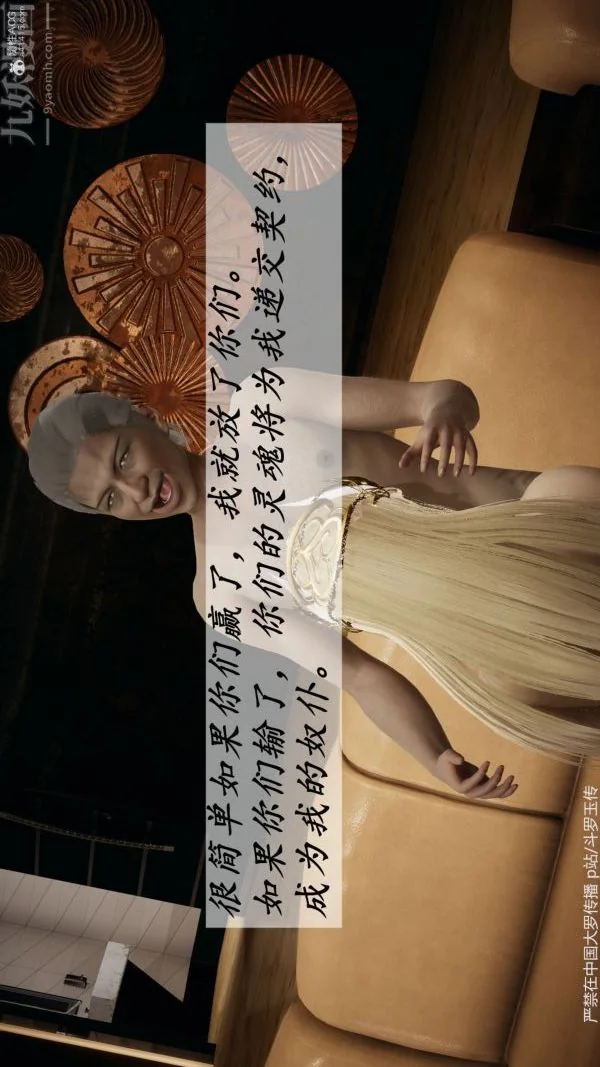 很简单如果你们赢了，我就放了你们。
如果你们输了，你们的灵魂将为我递交契约，
成为我的奴仆。
九妖漫画
9yaomh.com
严禁在中国大罗传播 p站/斗罗玉传